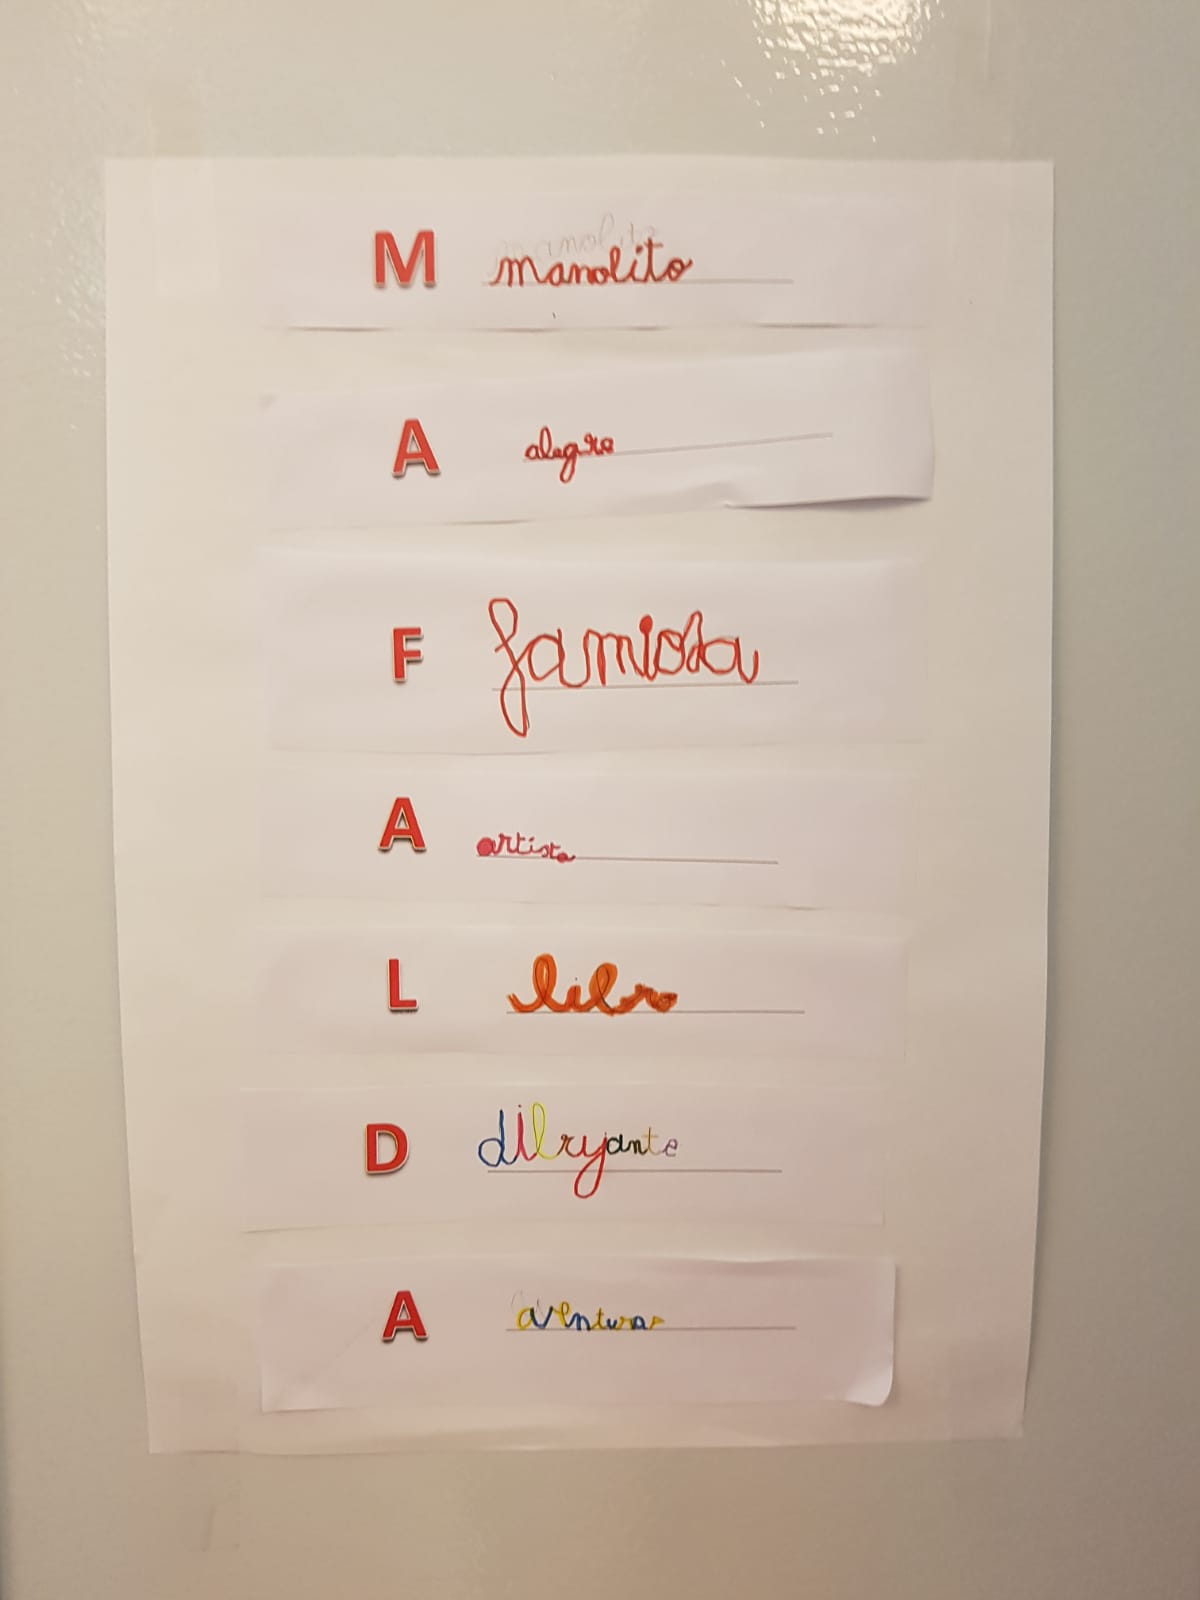 M manolito
A alegre
F famiosa
A artista
L libro
D dibryante
A aventuras